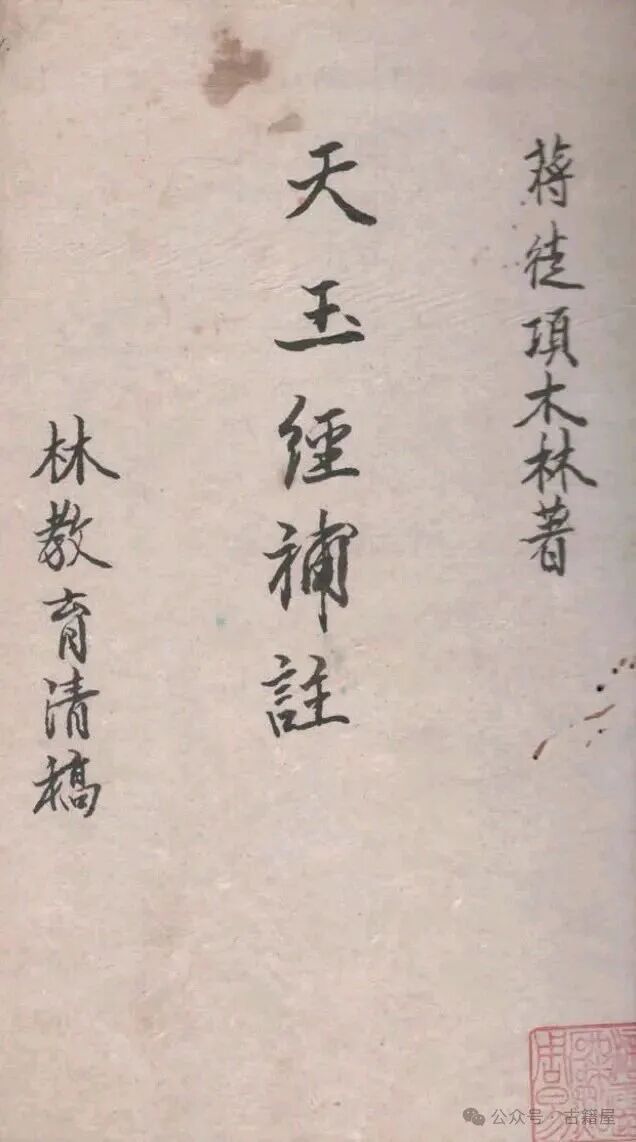 蔣徒項木林著
天玉經補註
林教育清稿
公众号·古籍屋